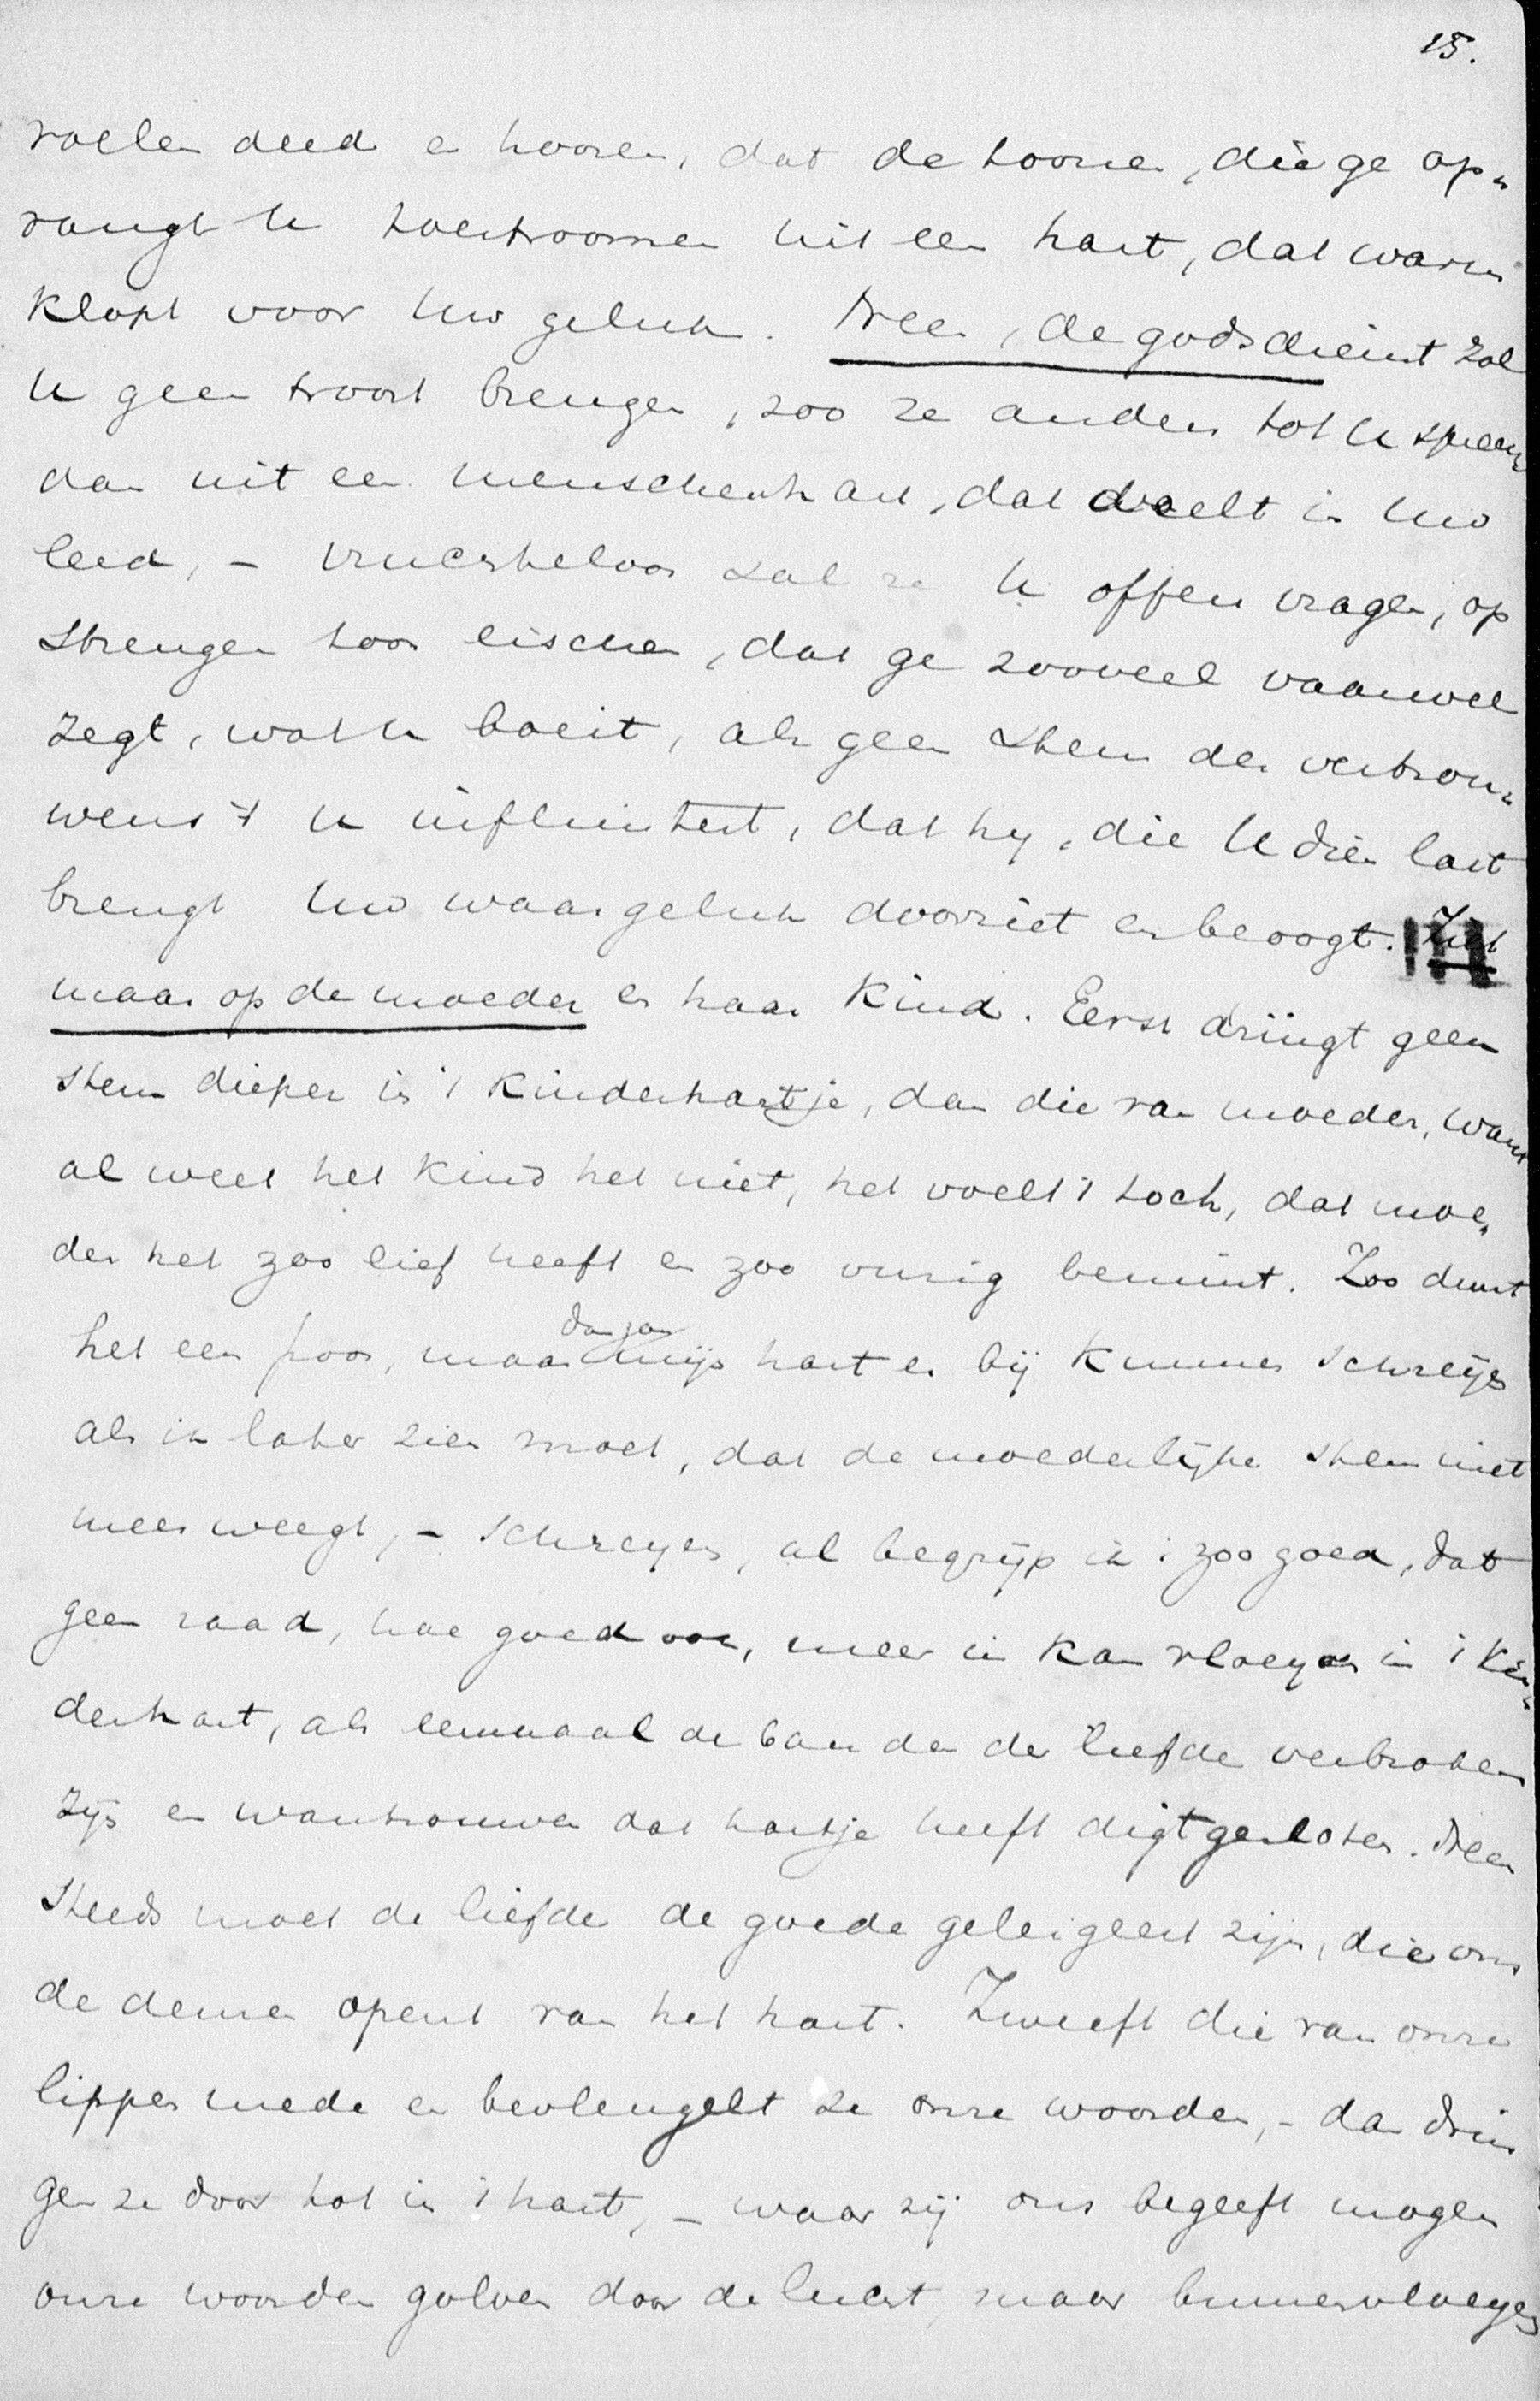 15.
voelen deed en hooren, dat de toonen, die ge op„
vangt U toestroomen uit een hart, dat warm
klopt voor Uw geluk. Neen, de godsdienst zal
U geen troost brengen, zoo ze anders tot U spreekt
dan uit een menschenhart, dat deelt in Uw
leed, – vruchteloos zal ze U offers vragen, op
strengen toon eischen, dat ge zooveel vaarwel
zegt, wat U boeit, als geen stem des vertrou„
wens 't U influistert, dat hy, die U dien last
brengt Uw waar geluk doorziet en beoogt. Ziet
maar op de moeder en haar kind. Eerst dringt geen
stem dieper in 't kinderhartje, dan die van moeder, want
al weet het kind het niet, het voelt 't toch, dat moe„
der het zoo lief heeft en zoo vurig bemint. Zoo duurt
het een poos, maar dan zou mijn hart er bij kunnen schreijen
als ik later zien moet, dat de moederlijke stem niet
meer weegt, – schreyen, al begrijp ik 't zoo goed, dat
geen raad, hoe goed ook, meer in kan vloeyen in 't kin„
derhart, als eenmaal de banden der liefde verbroken
zijn en wantrouwen dat hartje heeft digtgesloten. Neen
steeds moet de liefde de goede geleigeest zijn, die ons
de deuren opent van het hart. Zweeft die van onze
lippen mede en bevleugelt ze onze woorden, – dan drin
gen ze door tot in 't hart, – waar zij ons begeeft mogen
onze woorden golven door de lucht, maar binnenvloeyen